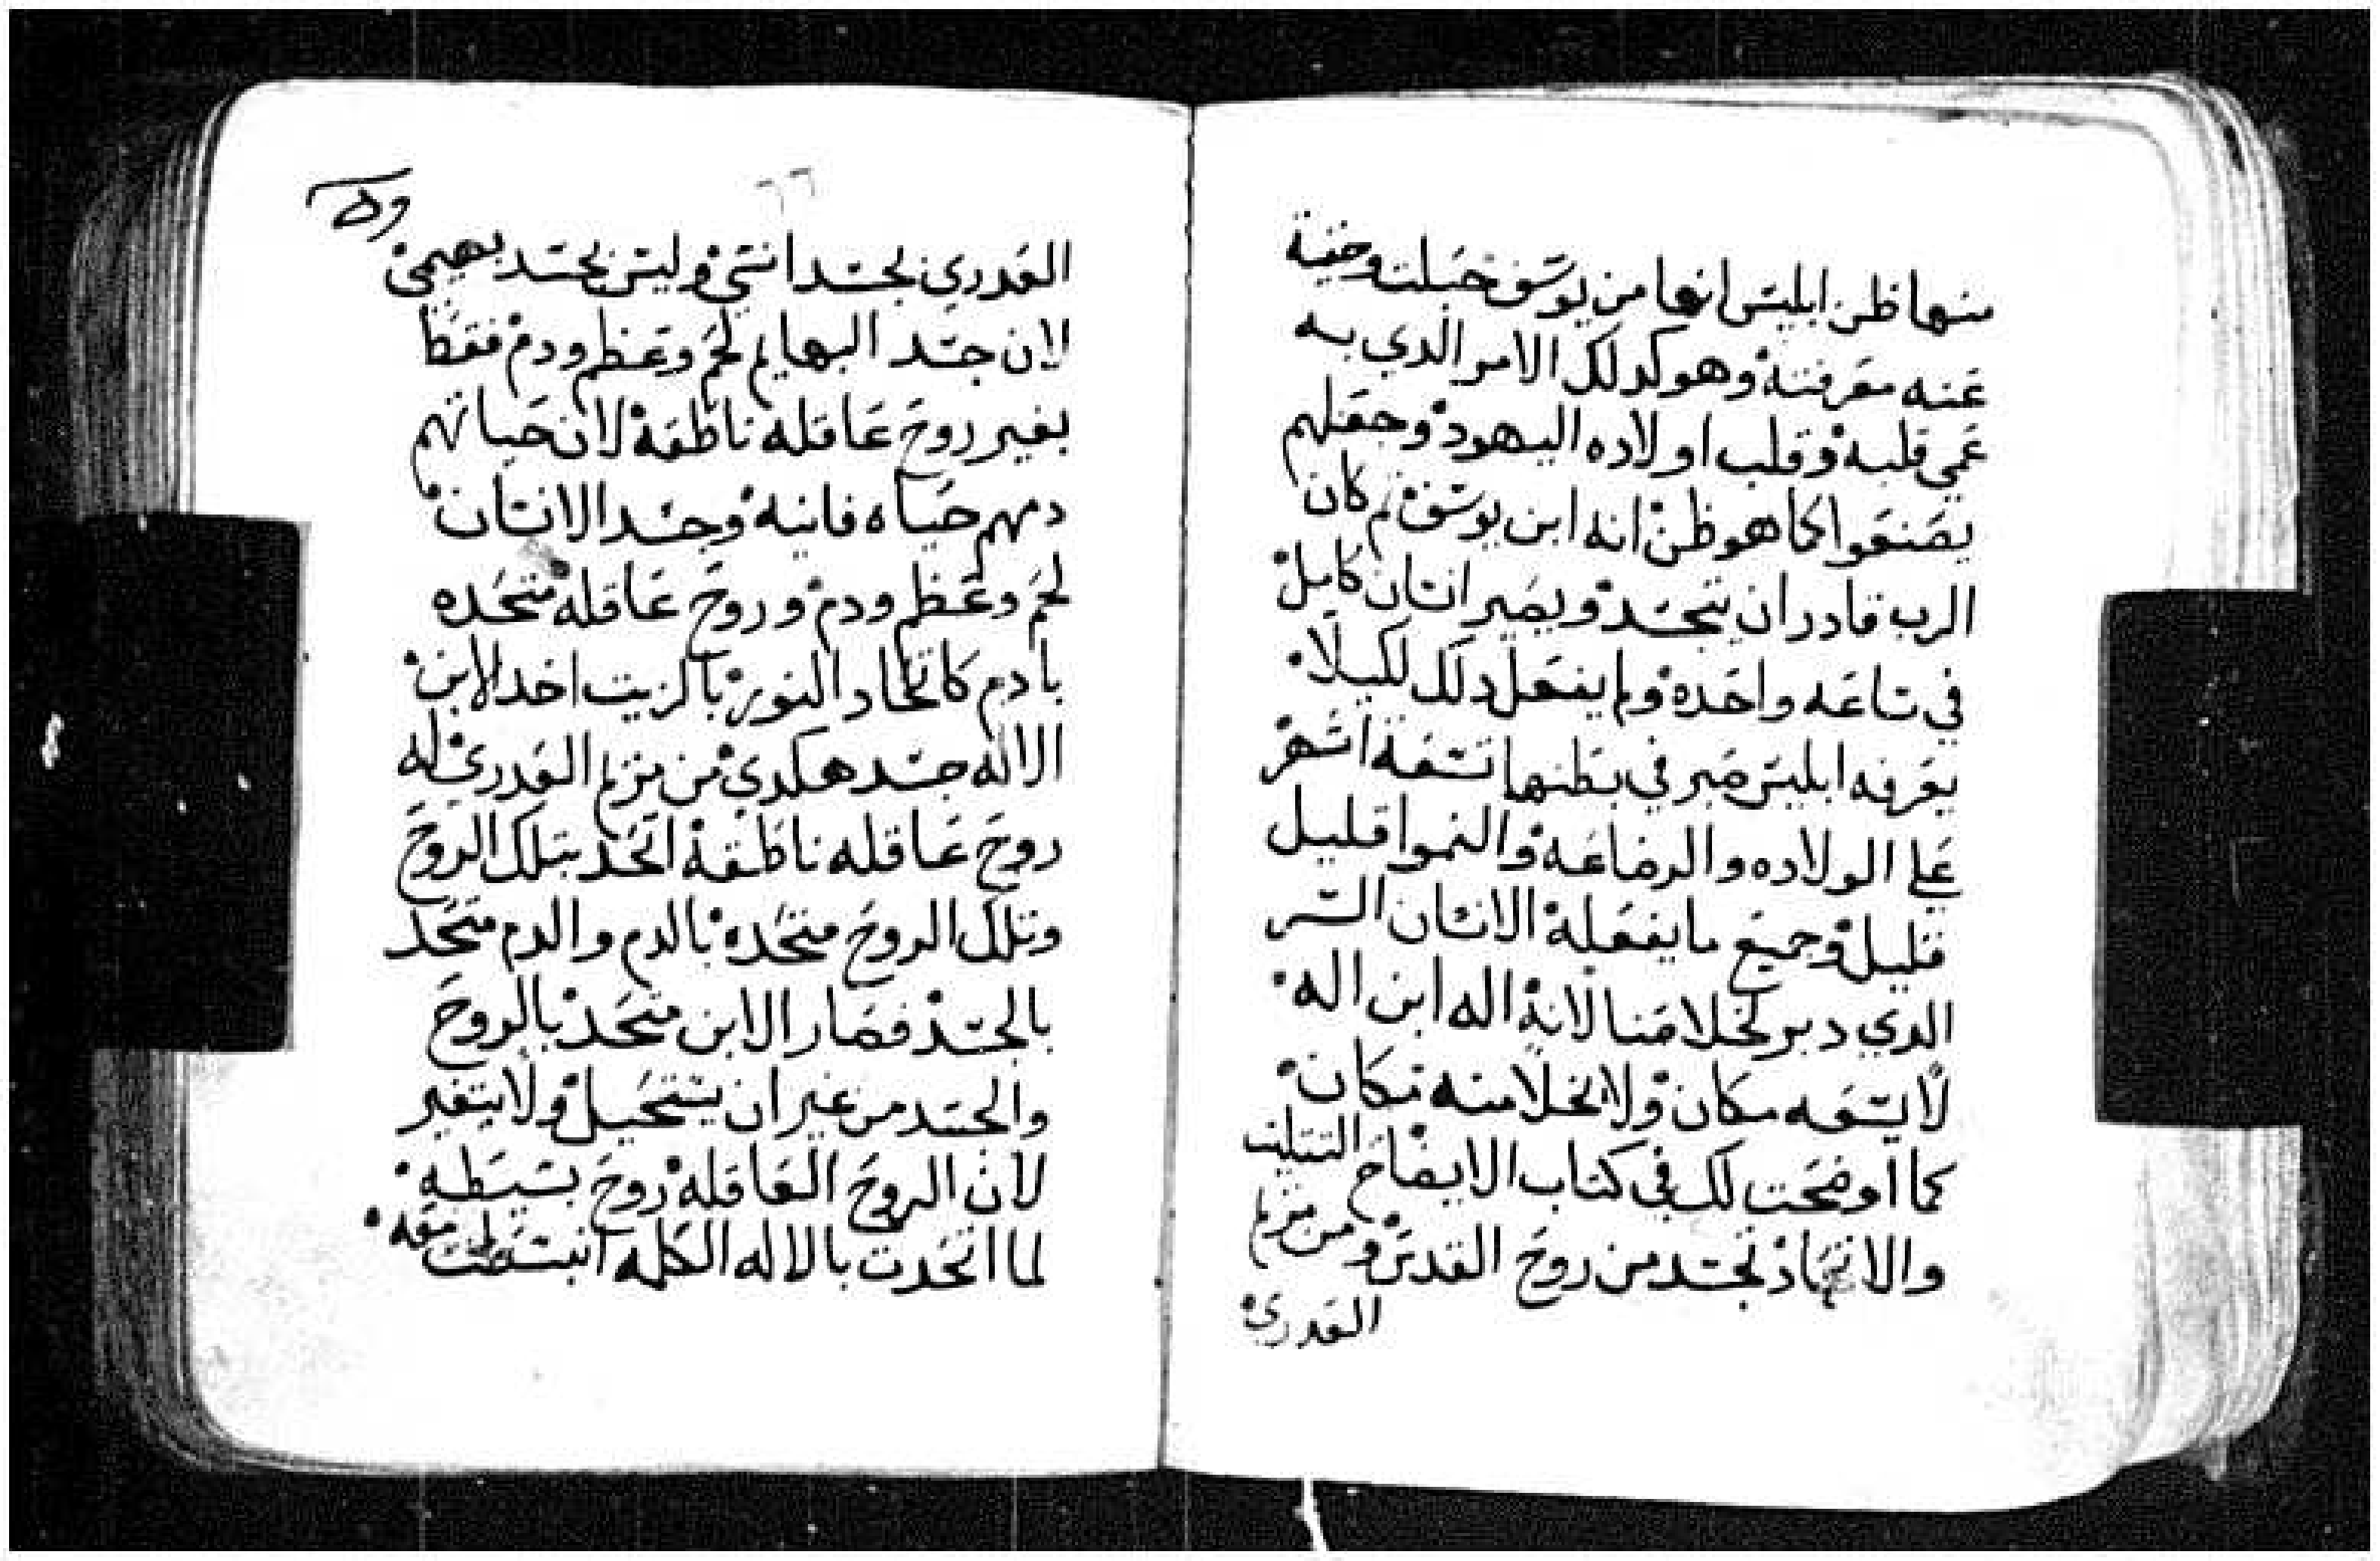 منها ظن ابليس انها من يوسف حبلت وخفية
عنه معرفته وهو كدلك الامر الدي به
عمي قلبه وقلب اولاده اليهود وجعلهم
يصنعوا كما هو ظن انه ابن يوسف ثم كان
الرب قادر ان يتجسد ويصير انسان كامل
في ساعه واحده ولم يفعل دلك لكيلا
يعرفه ابليس صبر في بطنها تسعة اشهر
علي الولاده والرضاعه والنموا قليل
قليل وجميع ما يفعله الانسان السر
الدي دبر لخلاصنا لانه اله ابن اله
لا يسعه مكان ولا يخلا منه مكان
كما اوضحت لك في كتاب الايضاح التتليت
والاتحاد تجسد من روح القدس ومن مريم
العدري
٦٦
العدري بجسد انسي وليس بجسد بهيمي
لان جسد البهايم لحم وعظم ودم فقط
بغير روح عاقله ناطقة لان حياتهم
دمهم حياه فانيه وجسد الانسان
لحم وعظم ودم وروح عاقله متحده
بادم كاتحاد النور بالزيت اخد الابن
الاله جسد هكدي من مريم العدري له
روح عاقله ناطقة اتحد بتلك الروح
وتلك الروح متحده بالدم والدم متحد
بالجسد فصار الابن متحد بالروح
والجسد من غير ان يستحيل ولا يتغير
لان الروح العاقله روح بسيطه
لما اتحدت بالاله الكلمه انبسطت معه